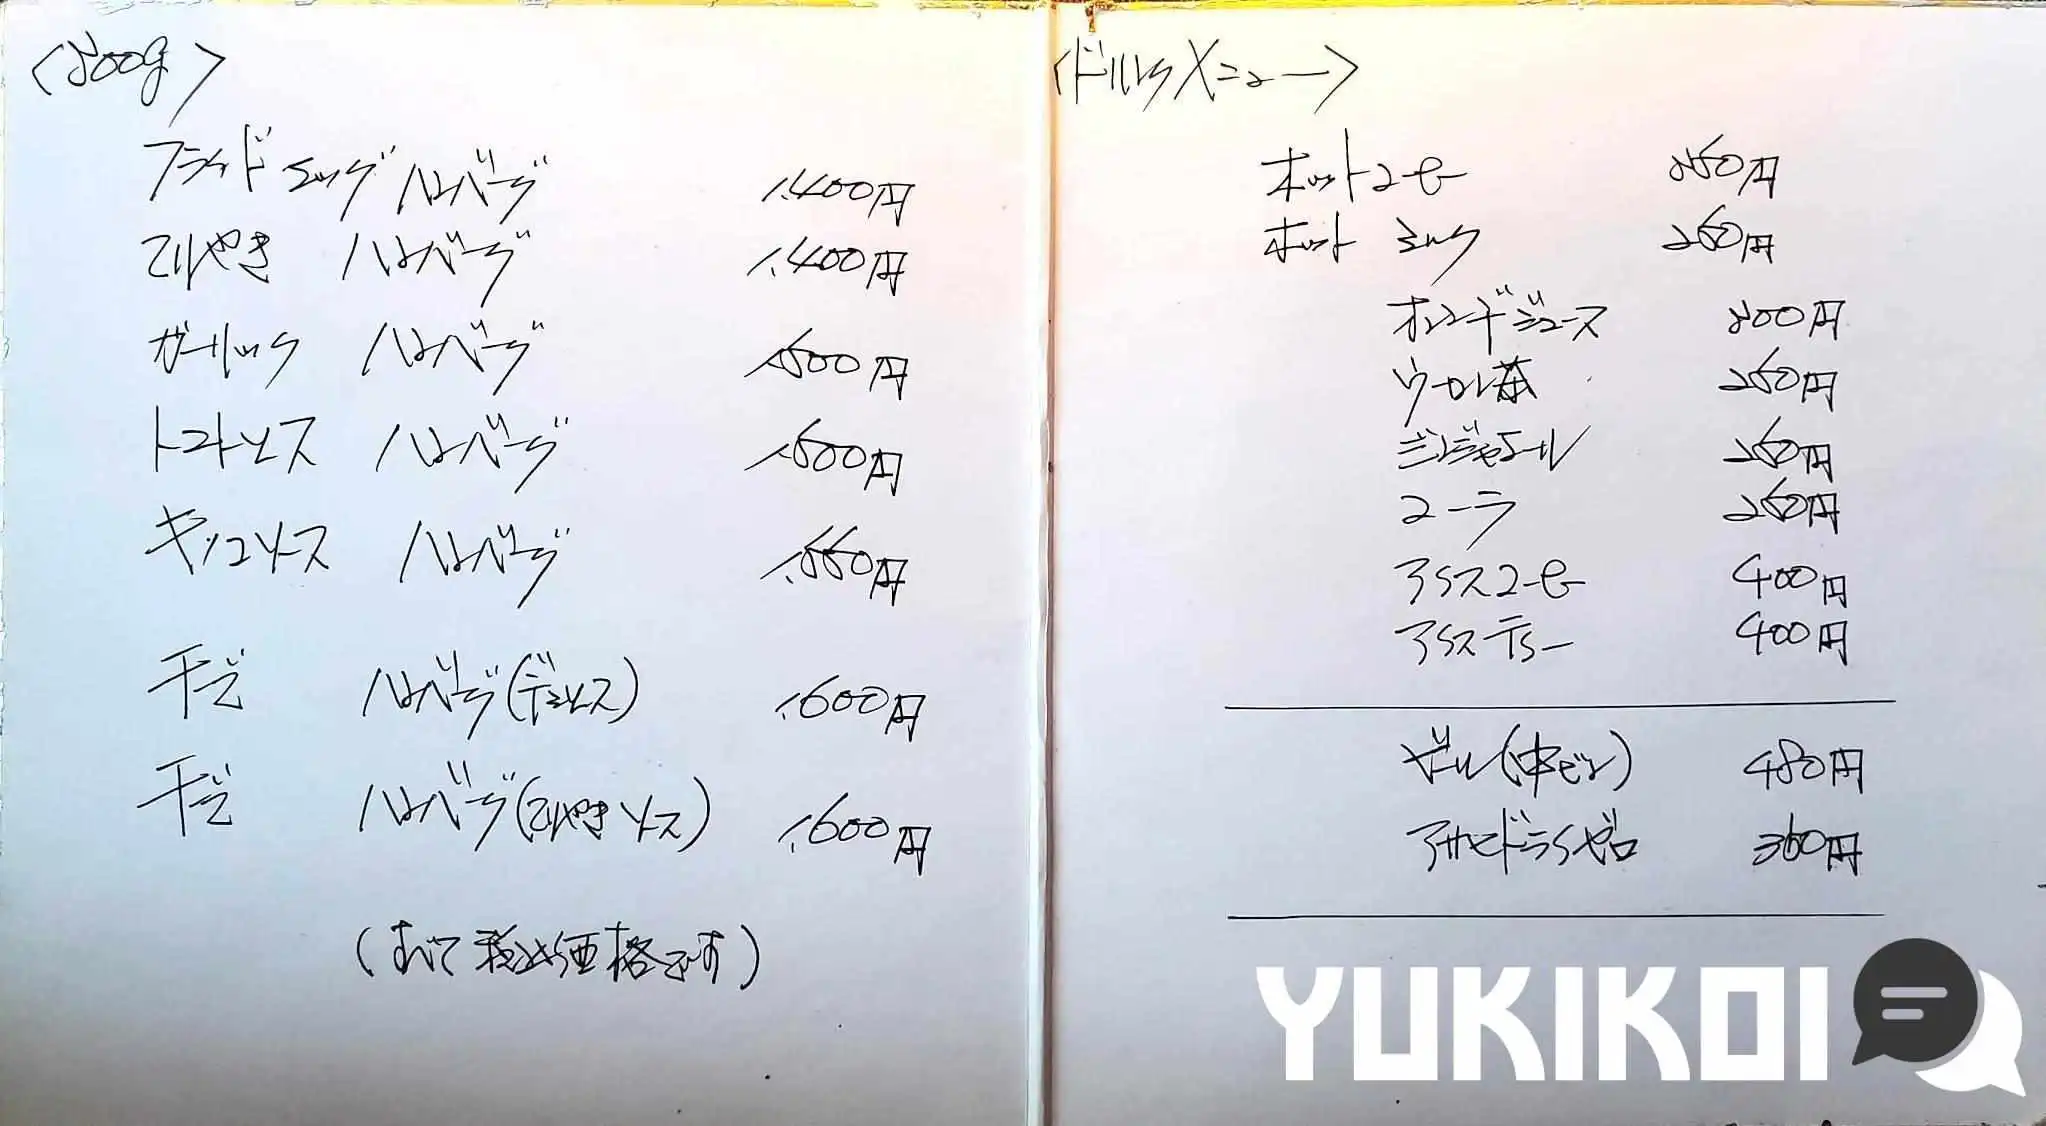 フライドエッグ ハンバーグ 1,400円
てりやき ハンバーグ 1,400円
ガーリック ハンバーグ 1,500円
トマトソース ハンバーグ 1,500円
キノコソース ハンバーグ 1,550円
チーズ ハンバーグ(デミソース) 1,600円
チーズ ハンバーグ(てりやきソース) 1,600円
(すべて税込価格です)
〈ドリンクメニュー〉
ホットコーヒー
ホット ミルク
オレンジジュース
ウーロン茶
ジンジャエール
コーラ
アイスコーヒー 400円
アイスティー 400円
ビール(中ビン) 480円
アサヒドライゼロ 360円
YUKIKOI